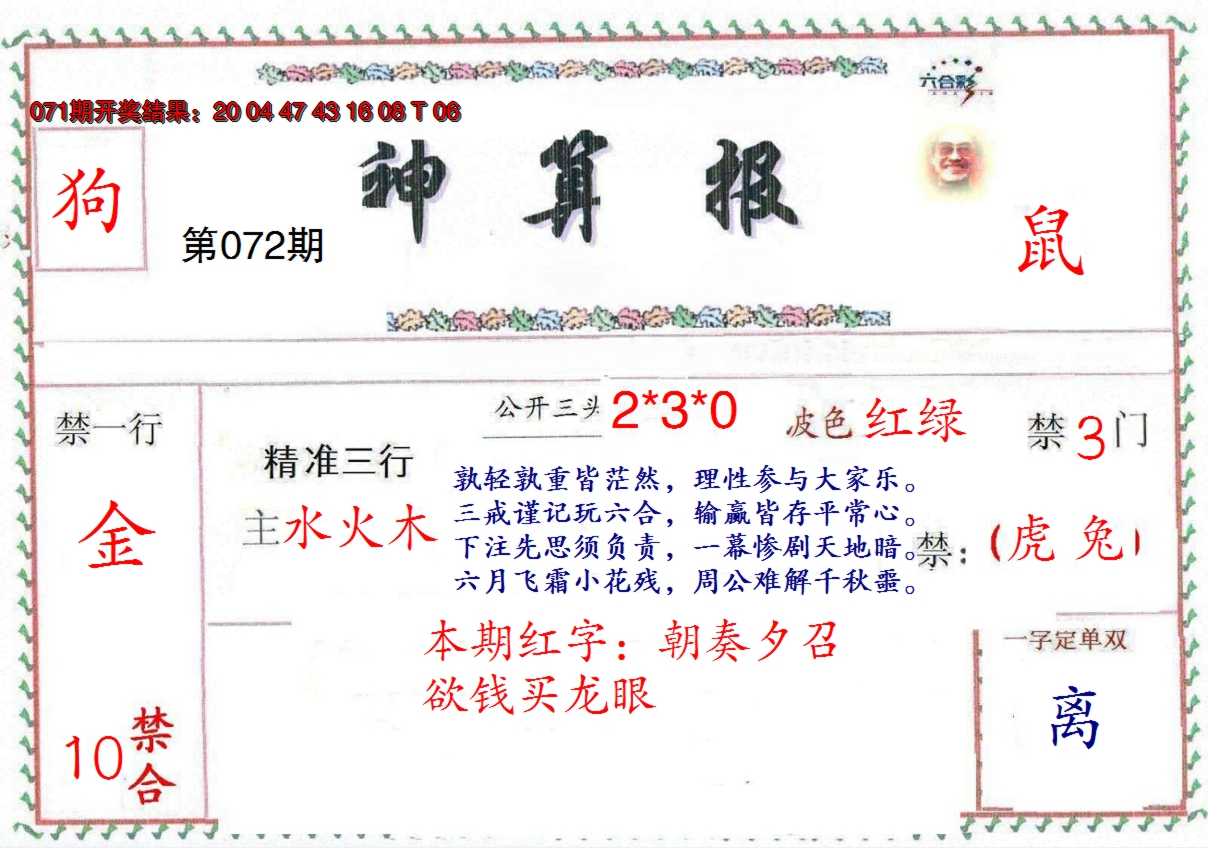 六合彩
071期开奖结果：20 04 47 43 16 08 T 06
神算报
狗
第072期
鼠
公开三头 2*3*0
波色 红绿
禁一行
禁3门
精准三行
主水火木
金
孰轻孰重皆茫然，理性参与大家乐。
三戒谨记玩六合，输赢皆存平常心。
下注先思须负责，一幕惨剧天地暗。
六月飞霜小花残，周公难解千秋噩。
禁：（虎 兔）
本期红字：朝奏夕召
欲钱买龙眼
一字定单双
离
10禁合